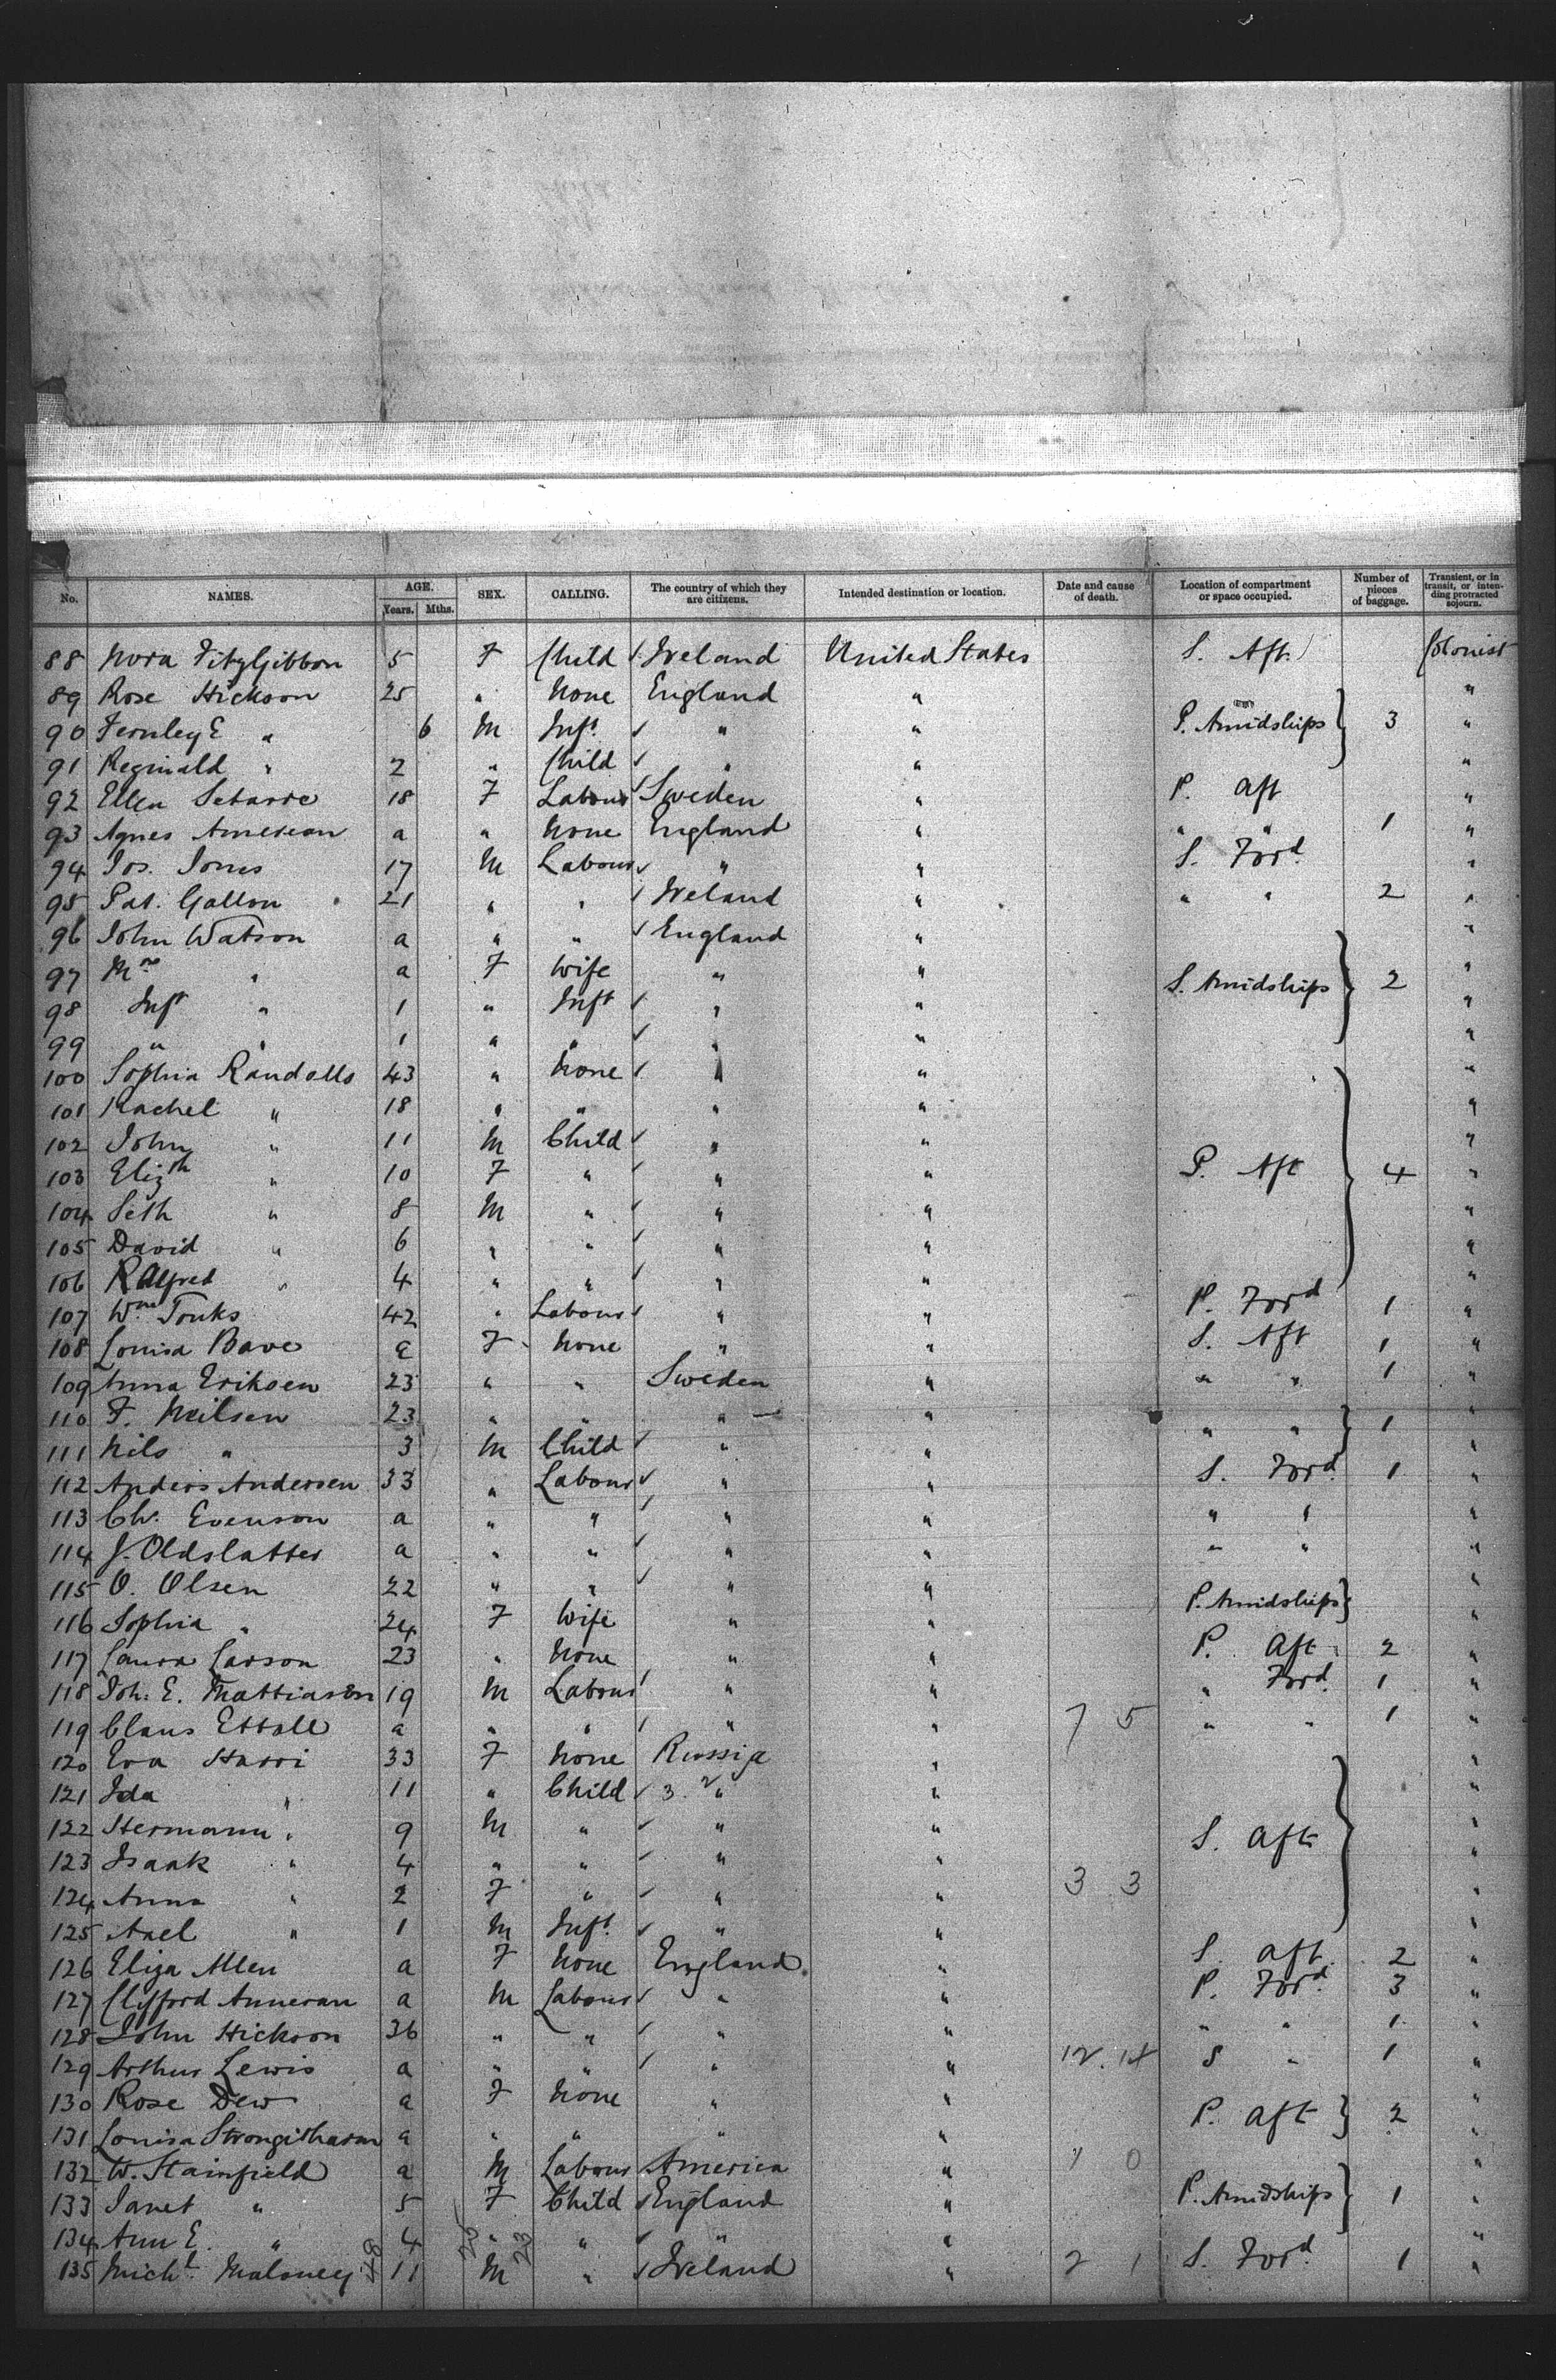 No. NAMES. AGE. Years. Mths. SEX. CALLING. The country of which they are citizens. Intended destination or location. Date and cause of death. Location of compartment or space occupied. Number of pieces of baggage. Transient, or in transit, or intending protracted sojourn.
88 Nora FitzGibbon 5 F Child Ireland United States S. Aft Colonist
89 Rose Hickson 25 " None England " "
90 Fernley E " 6 M Inft " " P. Amidships } 3 "
91 Reginald " 2 " Child " " "
92 Ellen 18 F Labour Sweden " P. Aft "
93 Agnes a " None England " " " 1 "
94 Jos. Jones 17 M Labour " " S. Ford "
95 Pat. Gallon 21 " " Ireland " " " 2 "
96 John Watson a " " England " "
97 Mrs " a F Wife " " S. Amidships } 2 "
98 Inft " 1 " Inft " " "
99 " " 1 " " " " "
100 Sophia Randolls 43 " None " " "
101 Rachel " 18 " " " " "
102 John " 11 M Child " " "
103 Elizth " 10 F " " " P. Aft } 4 "
104 Seth " 8 M " " " "
105 David " 6 " " " " "
106 Alfred " 4 " " " " "
107 Wm Tonks 42 " Labour " " P. Ford 1 "
108 Louisa Bave a F None " " S. Aft 1 "
109 Anna Eriksen 23 " " Sweden " " " 1 "
110 F. Neilsen 23 " " " " " " } 1 "
111 Nils " 3 M Child " " "
112 Anders Andersen 33 " Labour " " S. Ford 1 "
113 Ch. Evenson a " " " " " " "
114 J. Oldslatter a " " " " " " "
115 O. Olsen 22 " " " " P. Amidships } "
116 Sophia " 24 F Wife " " "
117 Laura Larson 23 " None " " P. Aft 2 "
118 Joh. E. Mattiasen 19 M Labour " " " Ford 1 "
119 Claus a " " " " 7 5 " " 1 "
120 Eva Harri 33 F None Russia " "
121 Ida " 11 " Child 3 " " "
122 Hermann " 9 M " " " S. Aft } "
123 Isaak " 4 " " " " "
124 Anna " 2 F " " " 3 3 "
125 Axel " 1 M Inft " " "
126 Eliza Allen a F None England " S. Aft 2 "
127 Clifford Anneran a M Labour " " P. Ford 3 "
128 John Hickson 36 " " " " " " 1 "
129 Arthur Lewis a " " " " 12. 14 S " 1 "
130 Rose Dew a F None " " P. Aft } 2 "
131 Louisa Strongitharm a " " " " "
132 W. Stainfield a M Labour America " 1 0 "
133 Janet " 5 F Child England " P. Amidships } 1 "
134 Ann E. " 4 " " " " "
135 Michl. Maloney 11 M " Ireland " 2 1 S. Ford 1 "